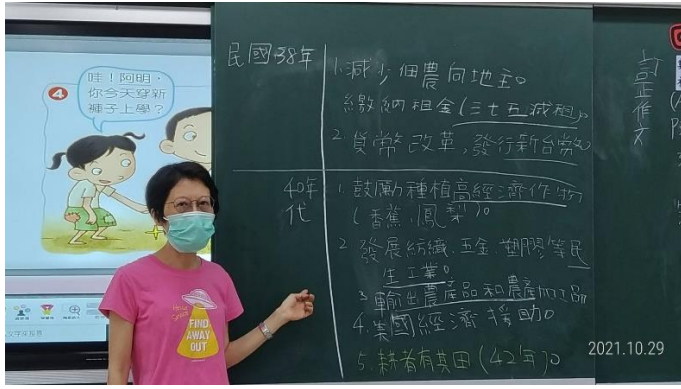 哇！阿明，
你今天穿新
褲子上學？
4
民國38年
1.減少佃農向地主。
繳納租金(三七五減租)。
2.貨幣改革，發行新台幣。
40年
代
1.鼓勵種植高經濟作物
(香蕉、鳳梨)。
2.發展紡織、五金、塑膠等民
生工業。
3.輸出農產品和農產加工品
4.美國經濟援助。
5.耕者有其田(42年)。
訂正作文
FIND
AWAY
OUT
2021.10.29